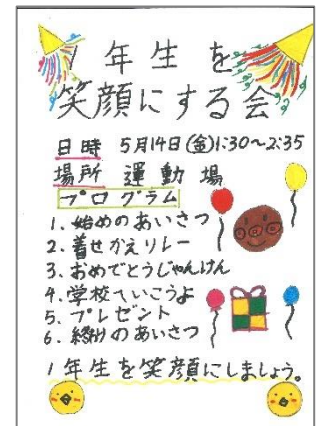 1年生を
笑顔にする会
日時 5月14日(金)1:30~2:35
場所 運動場
プログラム
1. 始めのあいさつ
2. 着せかえリレー
3. おめでとうじゃんけん
4. 学校ていこうよ
5. プレゼント
6. 終りのあいさつ
1年生を笑顔にしましょう。